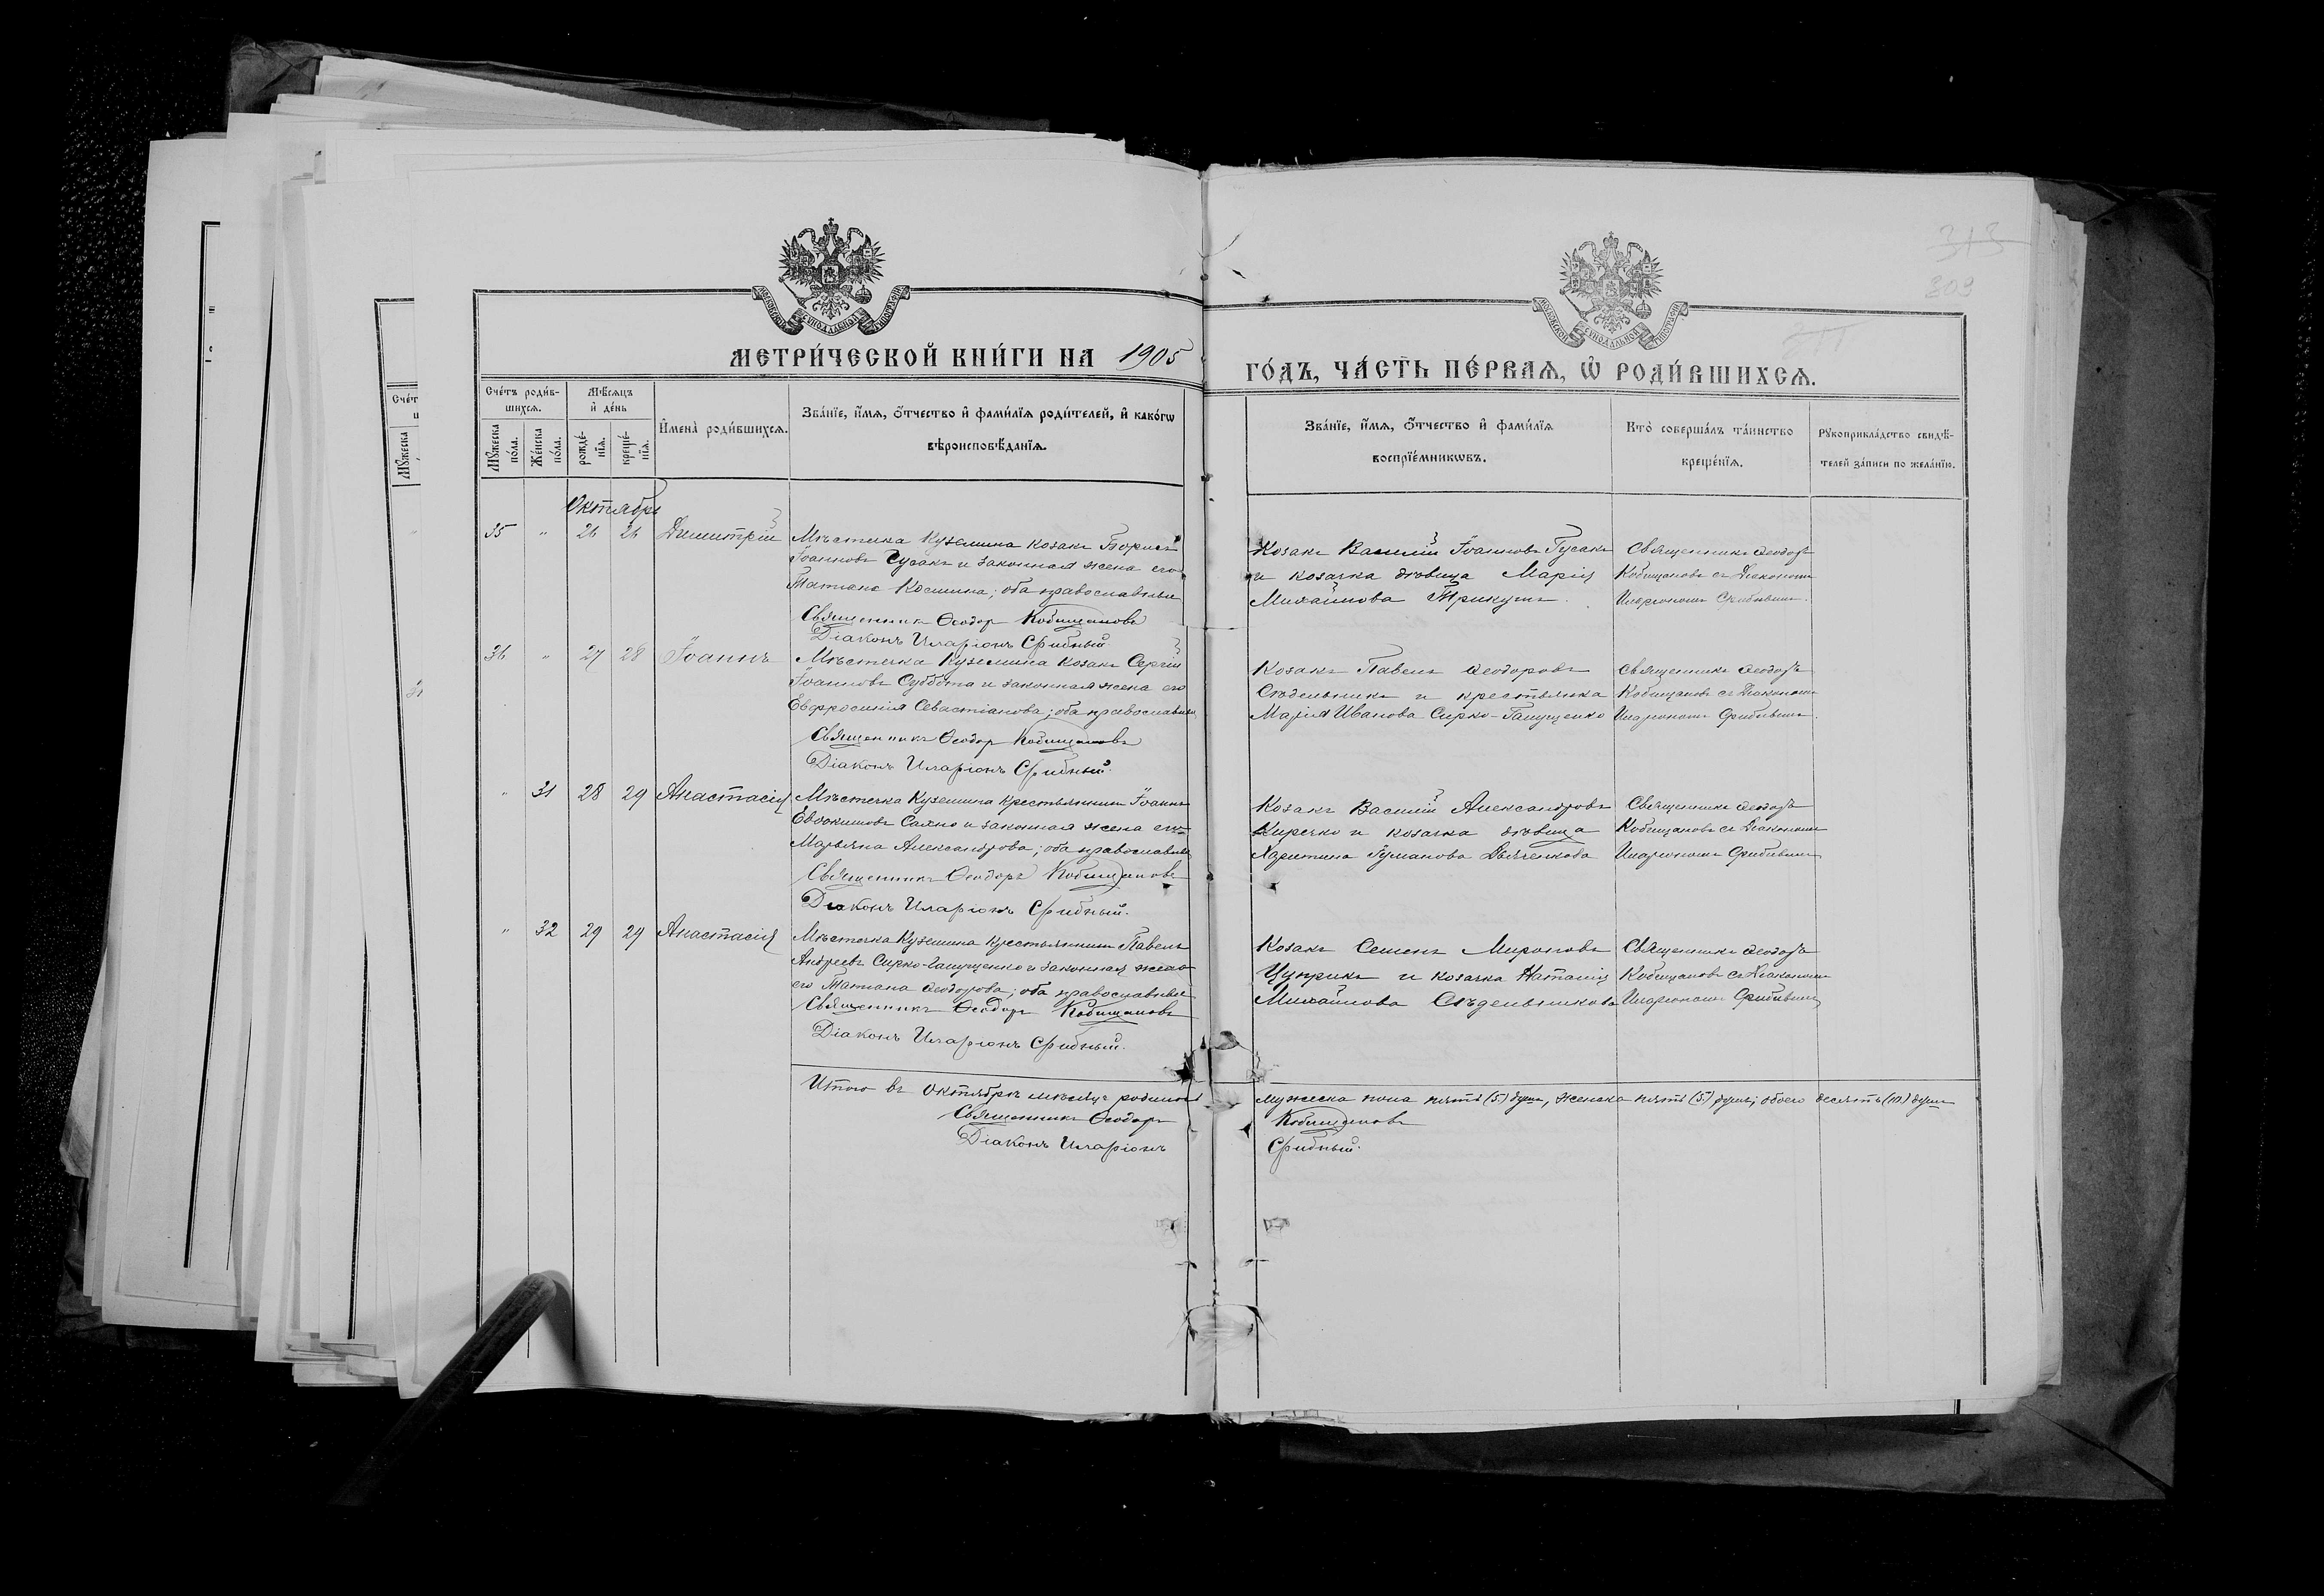 313
309
МОСКОВСКОЙ СѴНОДАЛЬНОЙ ТИПОГРАФІИ
МОСКОВСКОЙ СѴНОДАЛЬНОЙ ТИПОГРАФІИ
МЕТРИ́ЧЕСКОЙ КНИ́ГИ НА 1905
ГО́ДЪ, ЧА́СТЬ ПЕ́РВАѦ, Ѡ РОДИ́ВШИХСѦ.
Сче́тъ роди́в-
шихсѧ.
Мѣ́сѧцъ
и҆ де́нь
Мꙋ́жеска
по́ла.
Же́нска
по́ла.
рожде́-
нїѧ.
креще́-
нїѧ.
И҆мена̀ роди́вшихсѧ.
Зва́нїе, и҆́мѧ, ѻ҆́тчество и҆ фами́лїѧ роди́телей, и҆ како́гѡ
вѣроисповѣ́данїѧ.
Зва́нїе, и҆́мѧ, ѻ҆́тчество и҆ фами́лїѧ
воспрїе́мникѡвъ.
Кто̀ соверша́лъ та́инство
креще́нїѧ.
Рꙋкоприкла́дство свидѣ́-
телей за́писи по жела́нїю.
Октябрь
35 " 26 26 Димитрій
Мѣстечка Куземина козакъ Борисъ
Іоанновъ Гусакъ и законная жена его
Татіана Косьмина; оба православные
Священникъ Ѳеодоръ Кобищановъ
Діаконъ Иларіонъ Срибный.
Козакъ Василій Іоанновъ Гусакъ
и козачка дѣвица Марія
Михайлова Трикушъ.
Священникъ Ѳеодоръ
Кобищановъ съ Діакономъ
Иларіономъ Срибнымъ.
36 " 27 28 Іоаннъ
Мѣстечка Куземина козакъ Сергій
Іоанновъ Суббота и законная жена его
Евфросинія Севастіанова; оба православные
Священникъ Ѳеодоръ Кобищановъ
Діаконъ Иларіонъ Срибный.
Козакъ Павелъ Ѳеодоровъ
Сѣдельникъ и крестьянка
Марія Иванова Сирко-Гапущенко
Священникъ Ѳеодоръ
Кобищановъ съ Діакономъ
Иларіономъ Срибнымъ.
" 31 28 29 Анастасія
Мѣстечка Куземина крестьянинъ Іоаннъ
Евдокимовъ Сахно и законная жена его
Марьяна Александрова; оба православные
Священникъ Ѳеодоръ Кобищановъ
Діаконъ Иларіонъ Срибный.
Козакъ Василій Александровъ
Киречко и козачка дѣвица
Харитина Гуманова Дьяченкова
Священникъ Ѳеодоръ
Кобищановъ съ Діакономъ
Иларіономъ Срибнымъ
" 32 29 29 Анастасія
Мѣстечка Куземина крестьянинъ Павелъ
Андреевъ Сирко-Гапущенко и законная жена
его Татіана Ѳеодорова; оба православные
Священникъ Ѳеодоръ Кобищановъ
Діаконъ Иларіонъ Срибный.
Козакъ Семенъ Мироновъ
Цуприкъ и козачка Наталія
Михайлова Сѣдельникова
Священникъ Ѳеодоръ
Кобищановъ съ Діакономъ
Иларіономъ Срибнымъ
Итого въ Октябрѣ мѣсяцѣ родилось мужеска пола пять (5) душъ, женска пять (5) душъ; обоего десять (10) душъ
Священникъ Ѳеодоръ Кобищановъ
Діаконъ Иларіонъ Срибный.